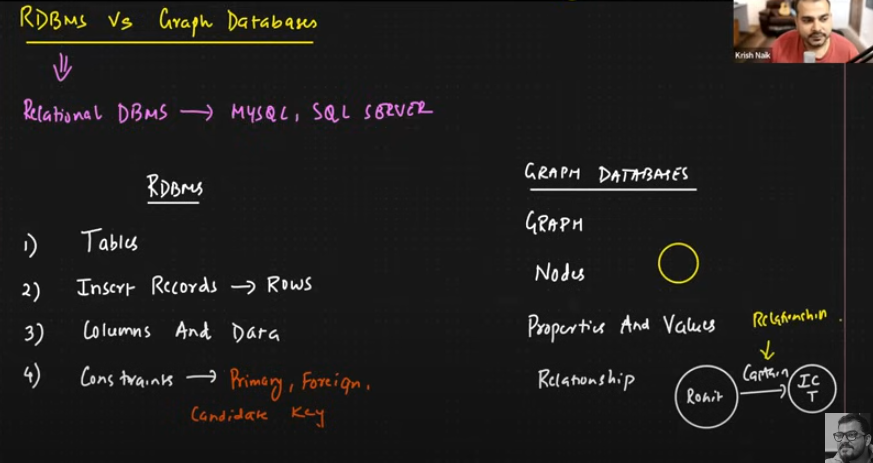 RDBMS vs Graph Databases
Krish Naik
Relational DBMS → MYSQL, SQL SERVER
RDBMS
1) Tables
2) Insert Records → Rows
3) Columns And Data
4) Constraints → Primary, Foreign,
Candidate Key
GRAPH DATABASES
GRAPH
Nodes
Properties And Values
Relationship
Relationship
Captain
Rohit
IC
T